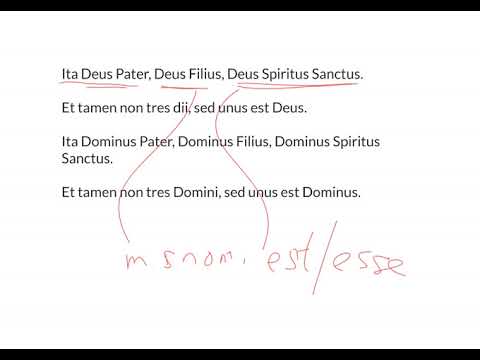 Ita Deus Pater, Deus Filius, Deus Spiritus Sanctus.
Et tamen non tres dii, sed unus est Deus.
Ita Dominus Pater, Dominus Filius, Dominus Spiritus
Sanctus.
Et tamen non tres Domini, sed unus est Dominus.
m s nom. est/esse